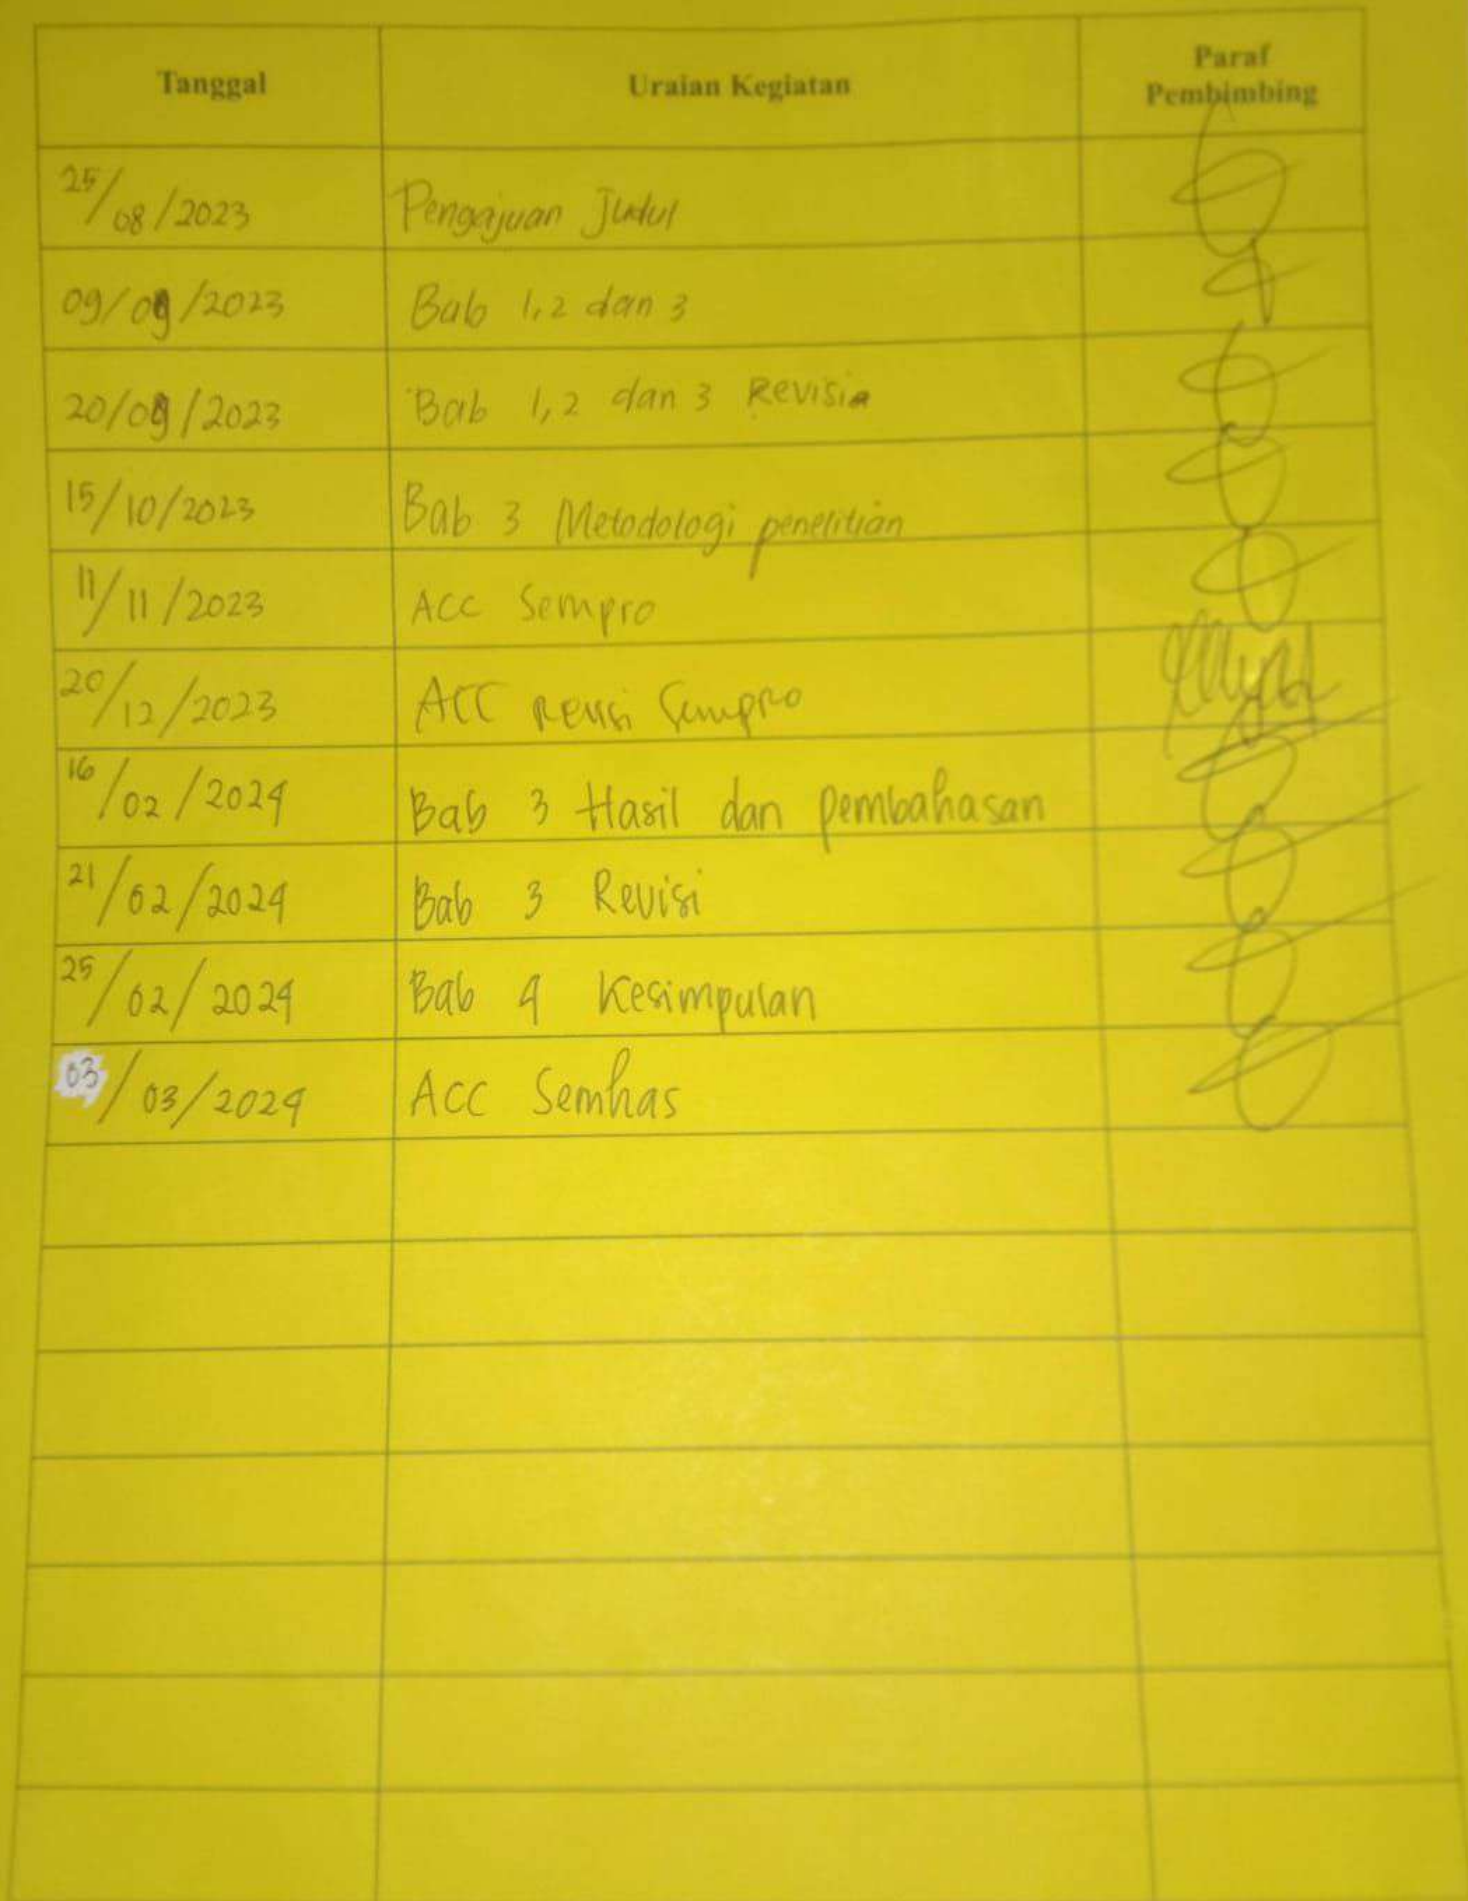 Tanggal Uraian Kegiatan Paraf Pembimbing
25/08/2023 Pengajuan Judul
09/09/2023 Bab 1,2 dan 3
20/09/2023 Bab 1,2 dan 3 Revisi
15/10/2023 Bab 3 Metodologi penelitian
11/11/2023 ACC Sempro
20/12/2023 ACC Revisi Sempro
16/02/2024 Bab 3 Hasil dan pembahasan
21/02/2024 Bab 3 Revisi
25/02/2024 Bab 4 Kesimpulan
03/03/2024 ACC Semhas